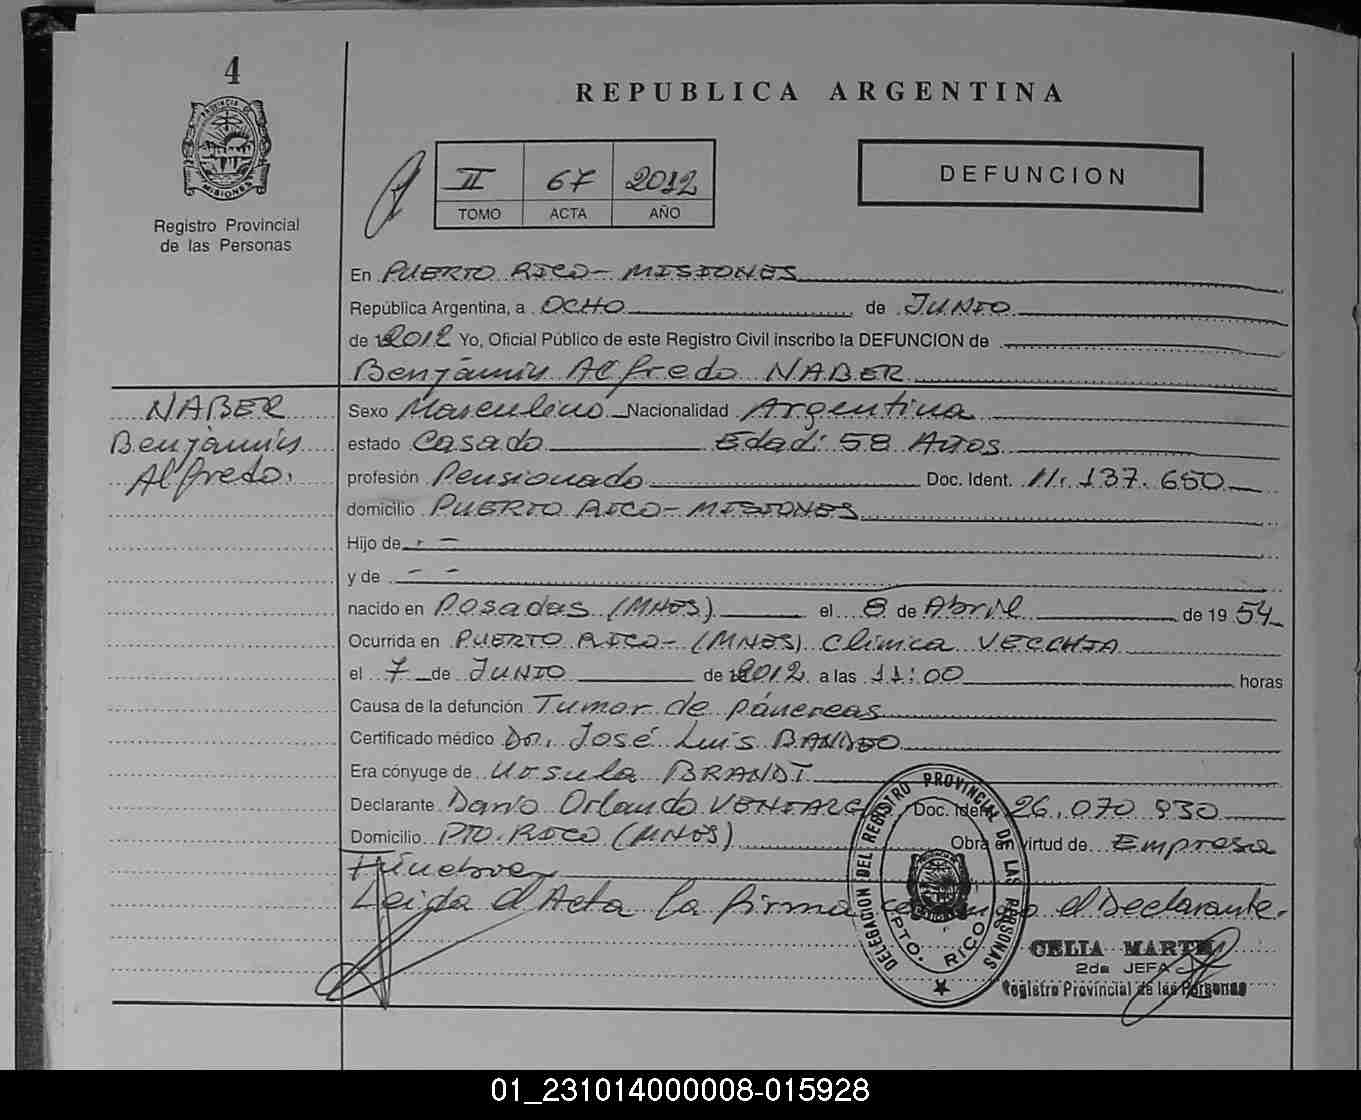 4
PROVINCIA DE
MISIONES
Registro Provincial
de las Personas
REPUBLICA ARGENTINA
II 67 2012
TOMO ACTA AÑO
DEFUNCION
En PUERTO RICO - MISIONES
República Argentina, a OCHO de JUNIO
de 2012 Yo, Oficial Público de este Registro Civil inscribo la DEFUNCION de
Benjamin Alfredo NABER
NABER
Benjamin
Alfredo.
Sexo Masculino Nacionalidad Argentina
estado Casado Edad: 58 Años
profesión Pensionado Doc. Ident. 11.137.650
domicilio PUERTO RICO - MISIONES
Hijo de - -
y de - -
nacido en Posadas (MNES) el 8 de Abril de 1954
Ocurrida en PUERTO RICO - (MNES) Clinica VECCHIA
el 7 de JUNIO de 2012 a las 11:00 horas
Causa de la defunción Tumor de páncreas
Certificado médico Dr. José Luis
Era cónyuge de Ursula BRANDT
Declarante Dario Orlando Doc. Ident. 26.070.930
Domicilio PTO. RICO (MNES) Obra en virtud de Empresa
Fúnebre
Leida el Acta la firma conmigo el Declarante.
DELEGACION DEL REGISTRO PROVINCIAL DE LAS PERSONAS
PTO. RICO
CELIA
2da JEFA
Registro Provincial de las Personas
01_231014000008-015928